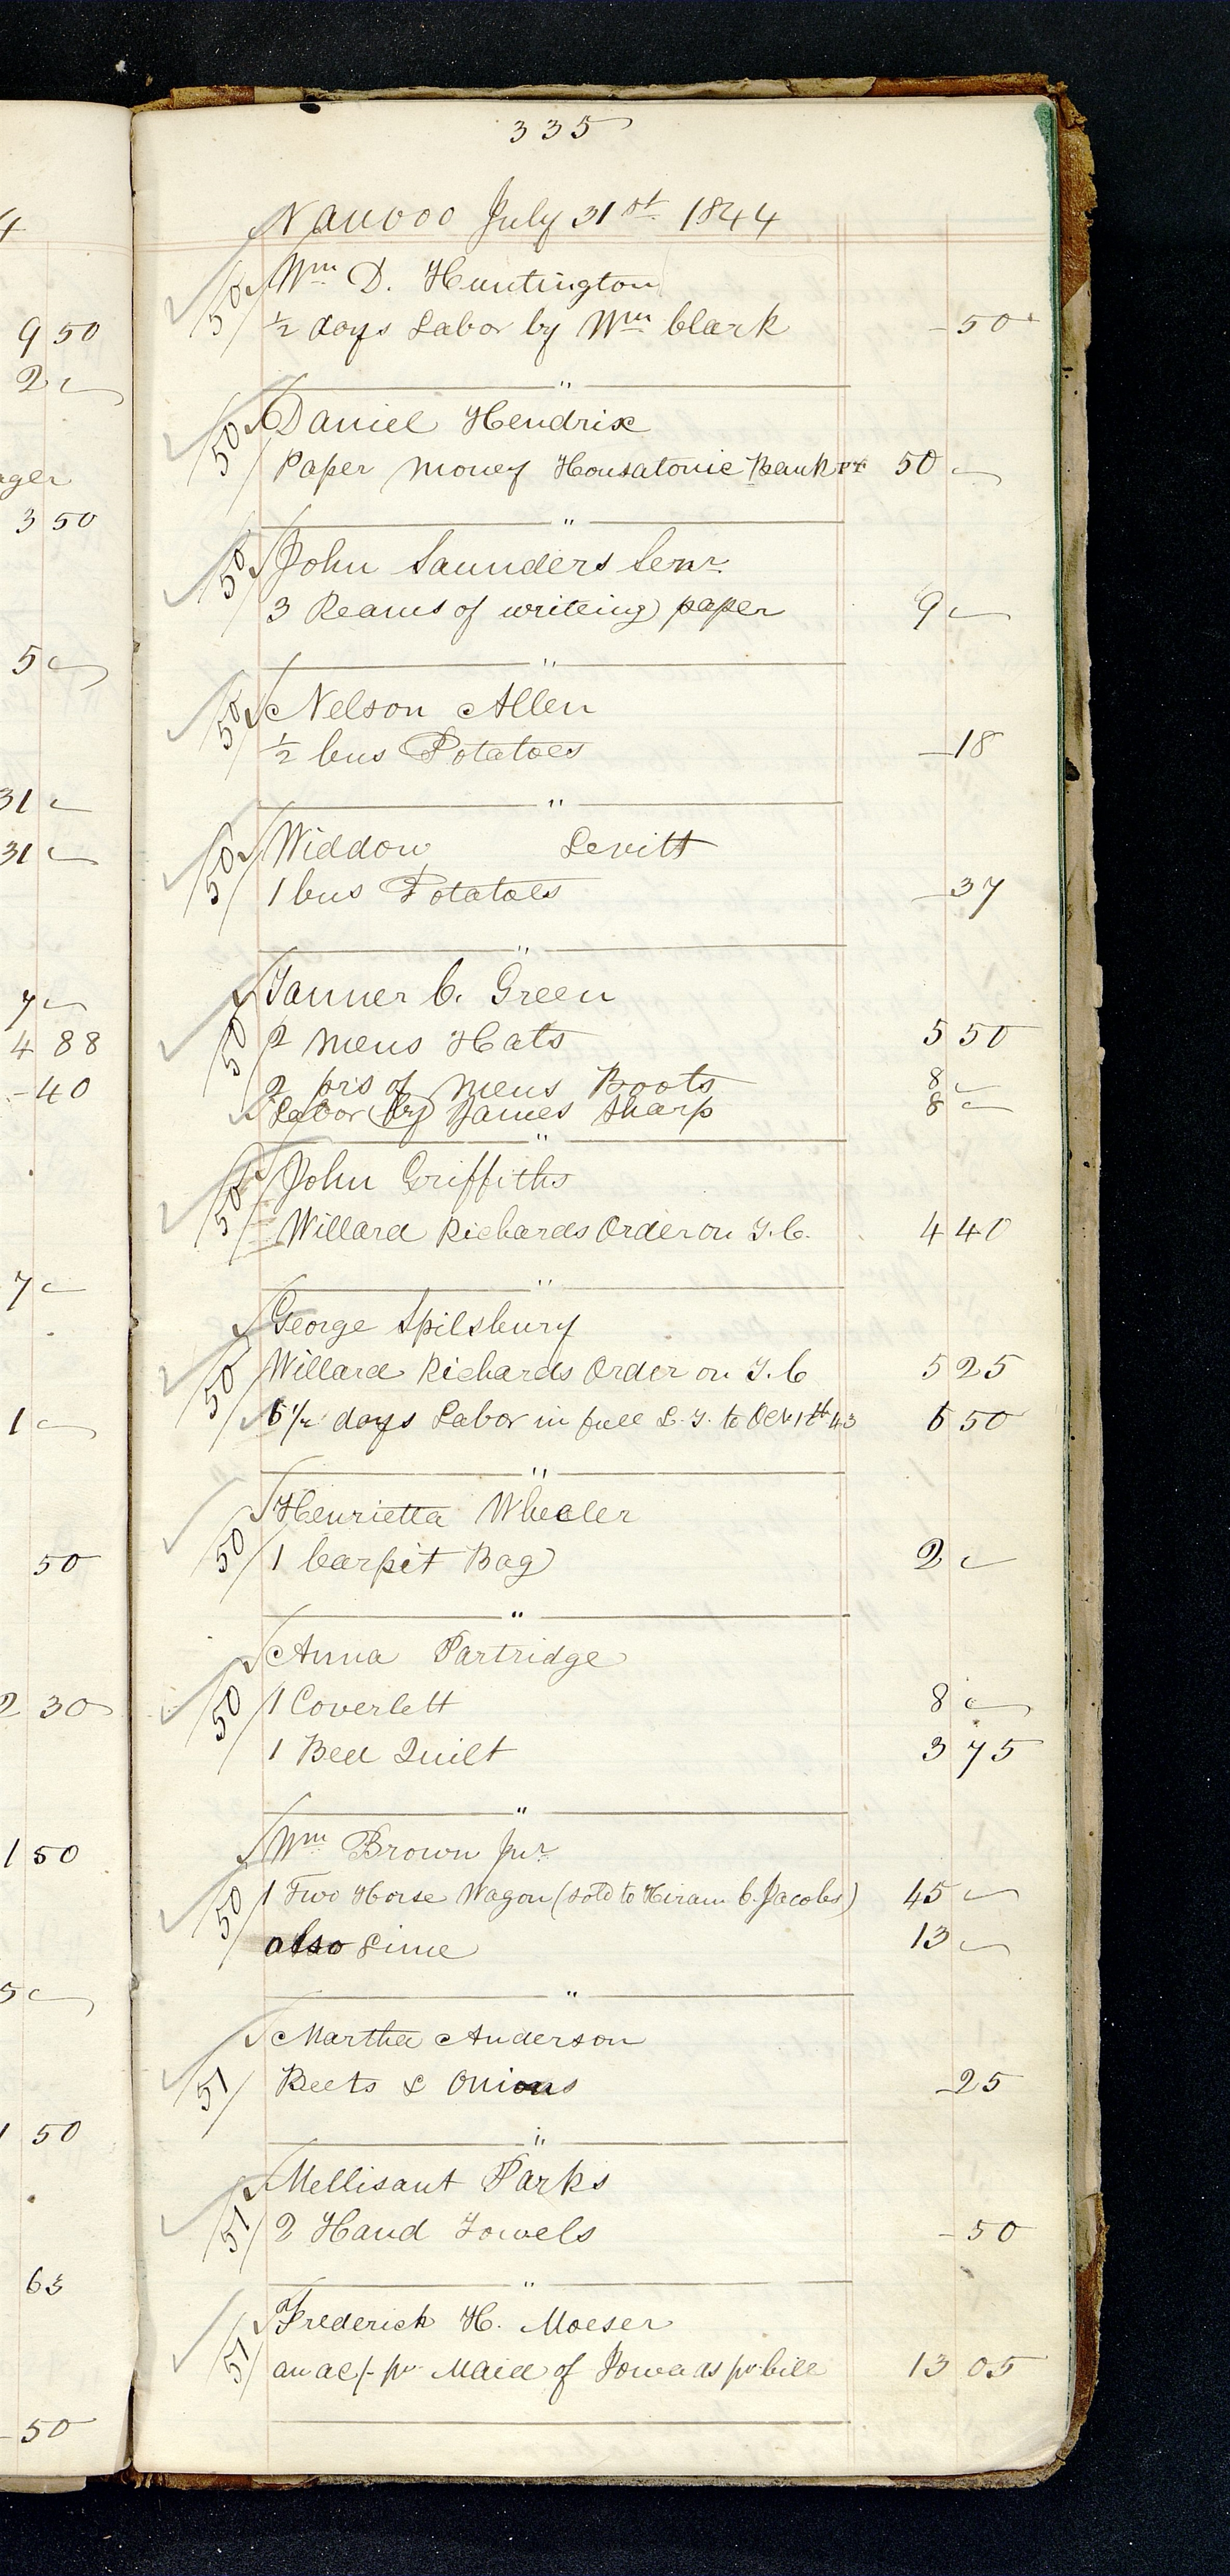 335
Nauvoo July 31st 1844
50 Wm D. Huntington
½ days Labor by Wm Clark - 50
"
50 Daniel Hendrix
Paper Money Housatonic Bank 50 -
"
50 John Saunders Senr.
3 Reams of writeing paper 9 -
"
50 Nelson Allen
½ bus Potatoes - 18
"
50 Widdow Levitt
1 bus Potatoes - 37
"
50 Tanner C. Green
2 mens Hats 5 50
2 prs of mens Boots 8 -
Labor by James Sharp 8 -
"
50 John Griffiths
Willard Richards Order on T.C. 4 40
"
50 George Spilsbury
Willard Richards Order on T.C 5 25
6½ days Labor in full L.T. to Oct 1st 43 6 50
"
50 Henrietta Wheeler
1 Carpit Bag 2 -
"
50 Anna Partridge
1 Coverlett 8 -
1 Bed Quilt 3 75
"
50 Wm Brown Jnr.
1 Two Horse Wagon (sold to Hiram C. Jacobs) 45 -
also Lime 13 -
"
51 Martha Anderson
Beets & Onions - 25
"
51 Mellisant Parks
2 Hand Towels - 50
"
51 Frederick H. Moeser
an ac/- pr Maid of Iowa as pr bill 13 05
4
9 50
2 -
ager
3 50
5 -
31 -
31 -
7 -
4 88
- 40
7 -
1 -
50
2 30
1 50
5 -
1 50
63
- 50